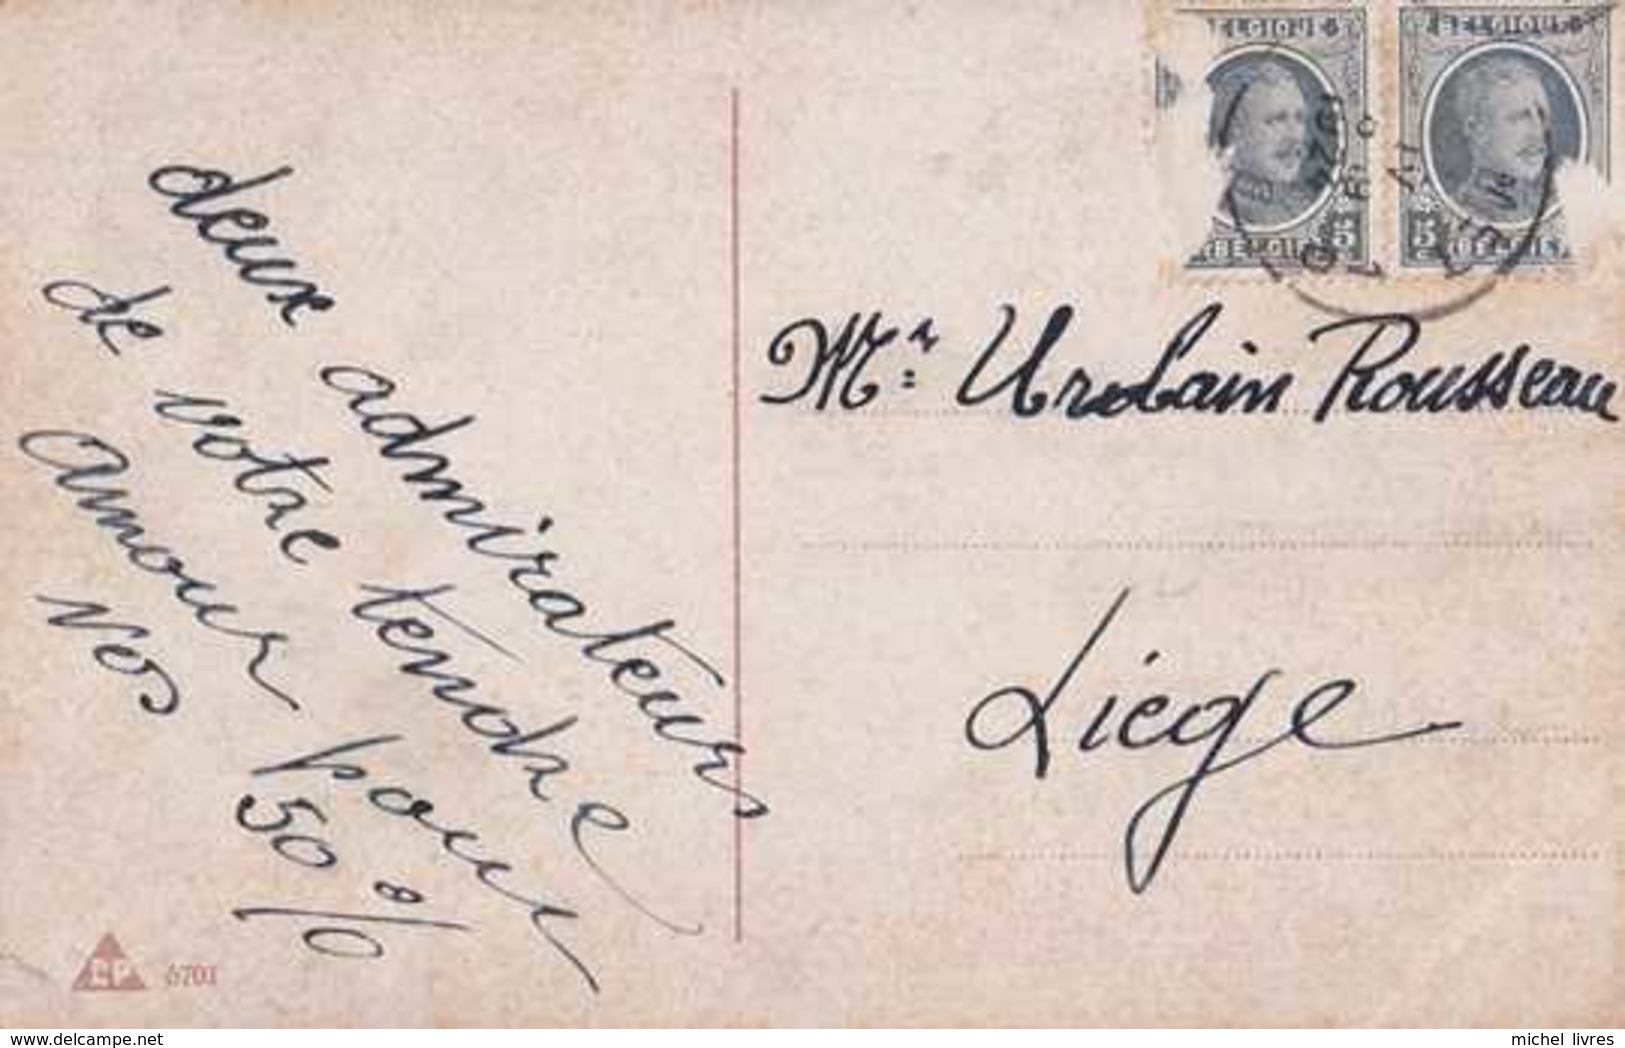 BELGIQUE
BELGIQUE
5 BELGIE
5 BELGIE
deux admirateurs
de votre tendre
amour pour
vos 50 %
Mr: Urbain Rousseau
Liége
6701
www.delcampe.net
michel_livres